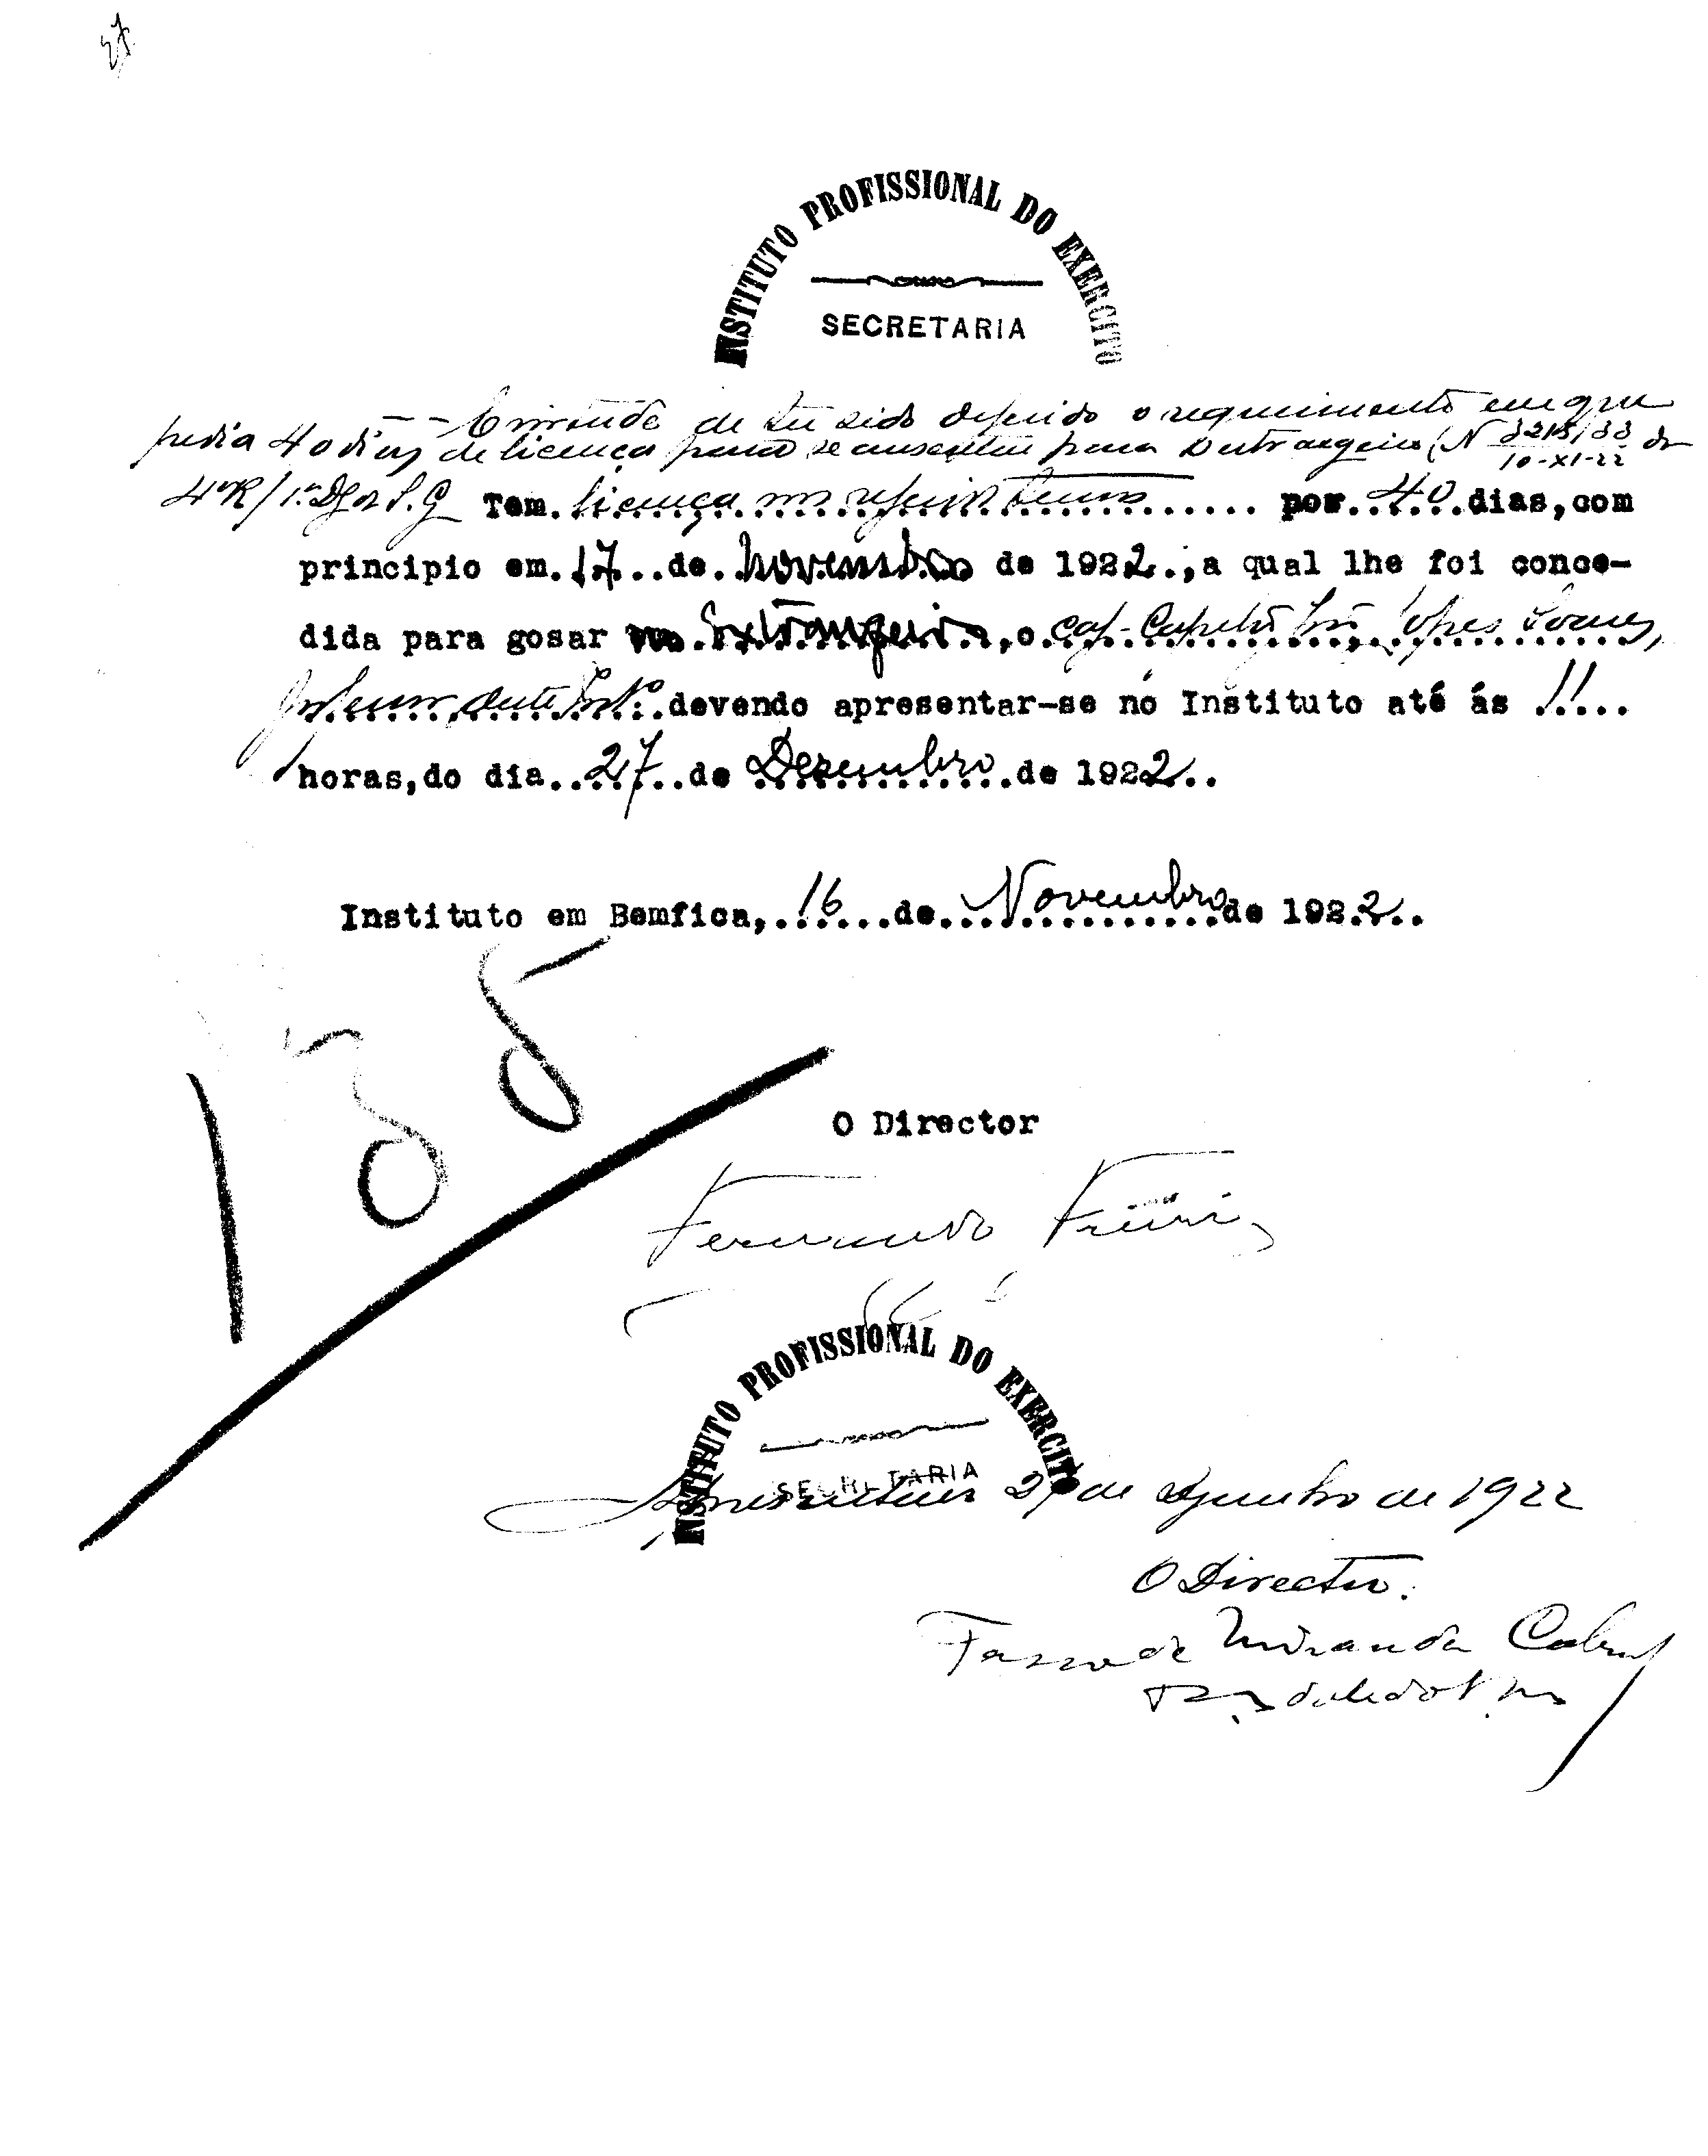 27
INSTITUTO PROFISSIONAL DO EXERCITO
SECRETARIA
de ter sido deferido o requerimento em que
pedia 40 dias de licença para se ausentar para o estrangeiro (Nº 3215/33 da
10-XI-22
4ª R/1ª D. G. da S. G Tem licença no referido termo por 40 dias, com
principio em 17 de novembro de 1922., a qual lhe foi conce-
dida para gosar no Extrangeiro, o cap. Capelão José Lopes Soares,
deste Insto. devendo apresentar-se no Instituto até ás 11
horas, do dia 27 de Dezembro de 1922..
Instituto em Bemfica, 16 de Novembro de 1922..
188
O Director
Fernando Freiria
INSTITUTO PROFISSIONAL DO EXERCITO
SECRETARIA
27 de Dezembro de 1922
O Director.
Tasso de Miranda Cabral